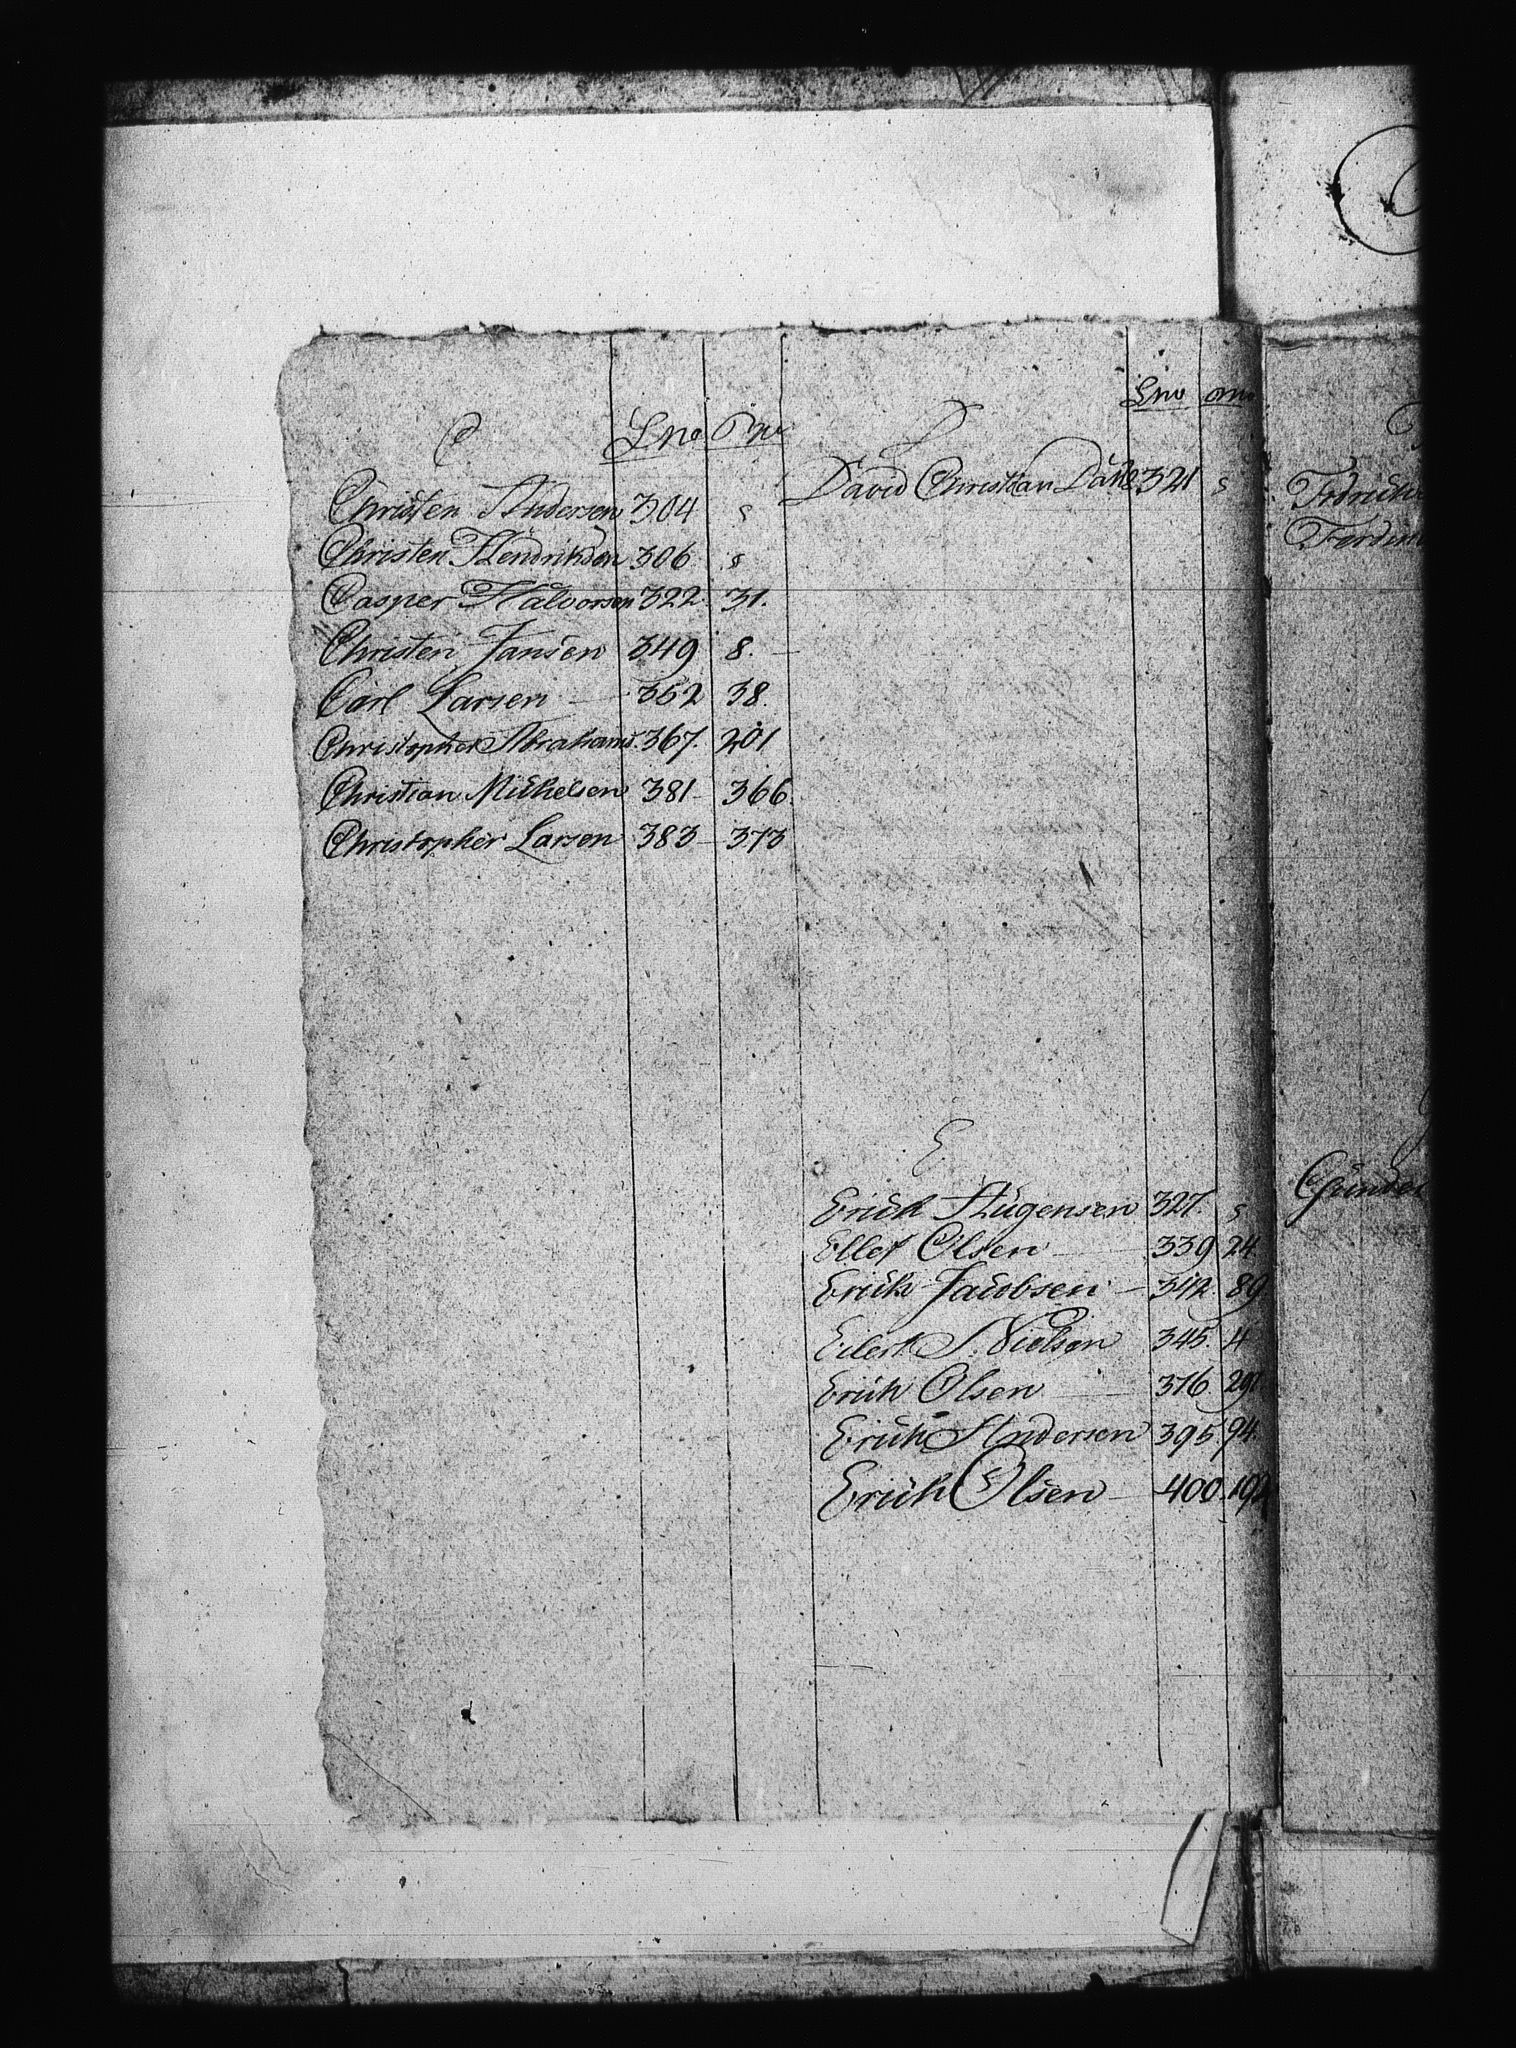 C Lno
Christen Andersen 304 s
Christen Hendriksen 306 s
Casper Halvorsen 322. 31.
Christen Jansen 349 8.
Carl Larsen 352 38.
Christopher Abrahams. 367. 201
Christian Michelsen 381 366.
Christopher Larsen 383 373
D Lno
David Christian 321 s
E
Erich 327. s
Ellef Olsen 339 24
Erich Jacobsen 342 89
Eilert Nielsen 345. 4
Erich Olsen 376 291
Erich Andersen 395. 94.
Erich Olsen 400.